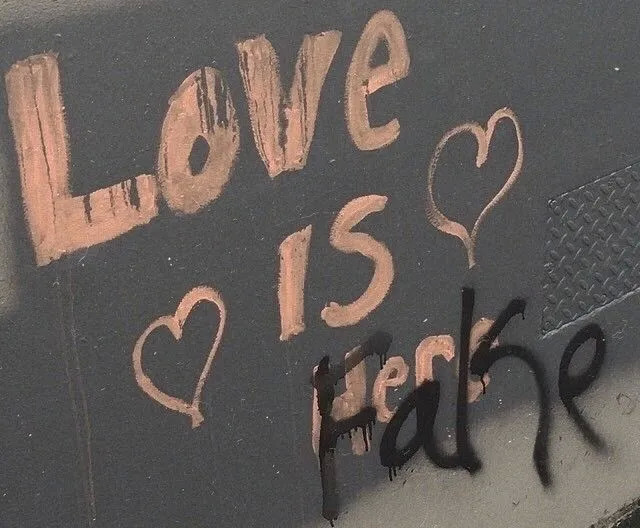 Love
is
Here
Fake